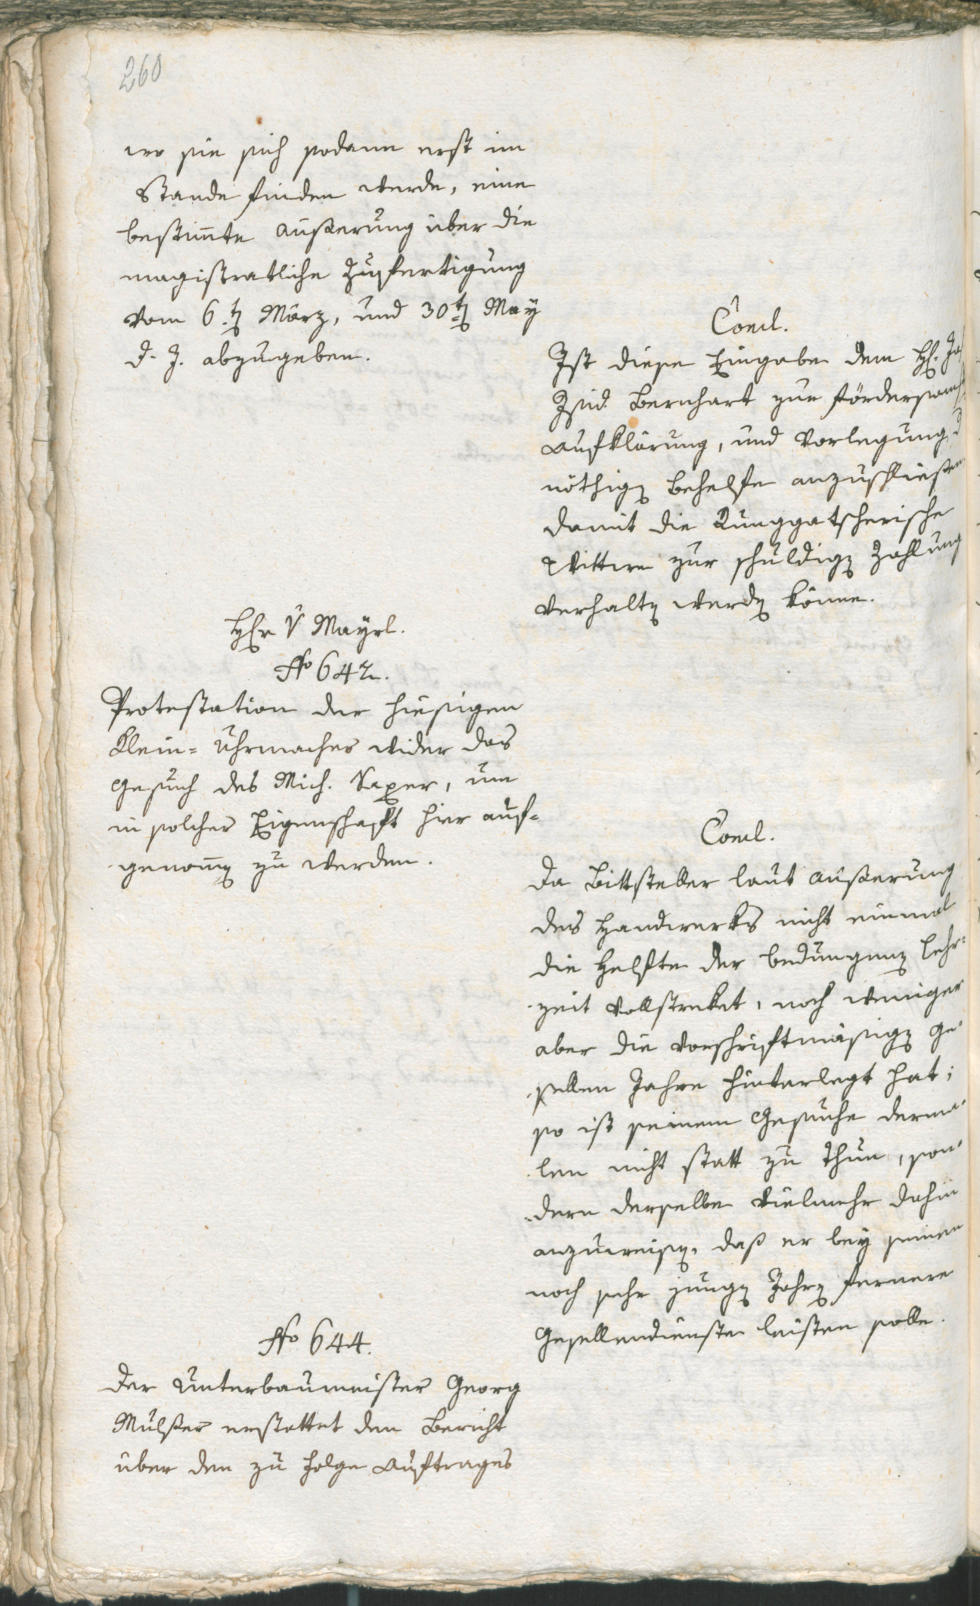 260
wo sie sich sodann erst im
Stande finden werde, eine
bestim̅te Äußerung über die
magistratliche Zufertigung
vom 6.t März, und 30t May
d. J. abzugeben.
Concl.
Ist diese Eingabe dem H.
Bernhart zur fördersam
Aufklärung, und Vorlegung d
nöthig Behelfe anzuschließen
damit die Runggatscherische
Wittwe zur schuldig Zahlung
verhalt werd könne.
Hr v Mayrl.
No 642.
Protestation der hiesigen
Klein-Uhrmacher wider das
Gesuch des Mich. Saxer, um
in solcher Eigenschaft hier auf-
genom̅ zu werden.
Concl.
Da Bittsteller laut Äußerung
des Handwerks nicht einmal
die Helfte der bedungenen Lehr-
zeit vollstreket, noch weniger
aber die vorschriftmäßig Ge-
sellen Jahre hinterlegt hat;
so ist seinem Gesuche derma-
len nicht statt zu thun, son-
dern derselbe vielmehr dahin
anzuweisen, daß er bey seinen
noch sehr jung Jahr fernere
Gesellendienste leisten solle.
No 644.
Der Unterbaumeister Georg
Mulser erstattet den Bericht
über den zu Folge Auftrages